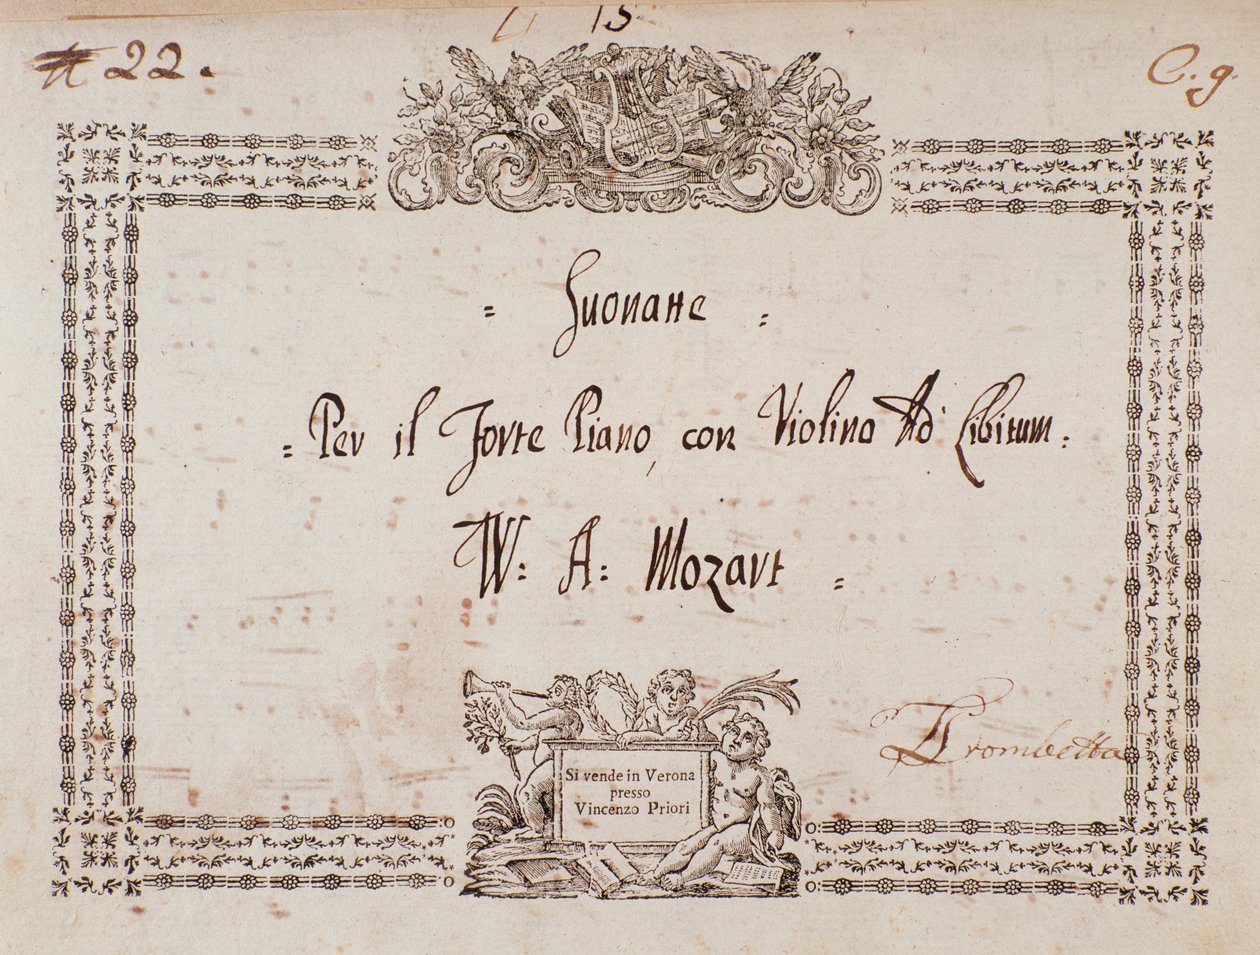 15
22.
C. g.
= Suonatte =
= Per il Forte Piano, con Violino Ad Libitum.
W: A: Mozart =
Trombetta
Si vende in Verona
presso
Vincenzo Priori